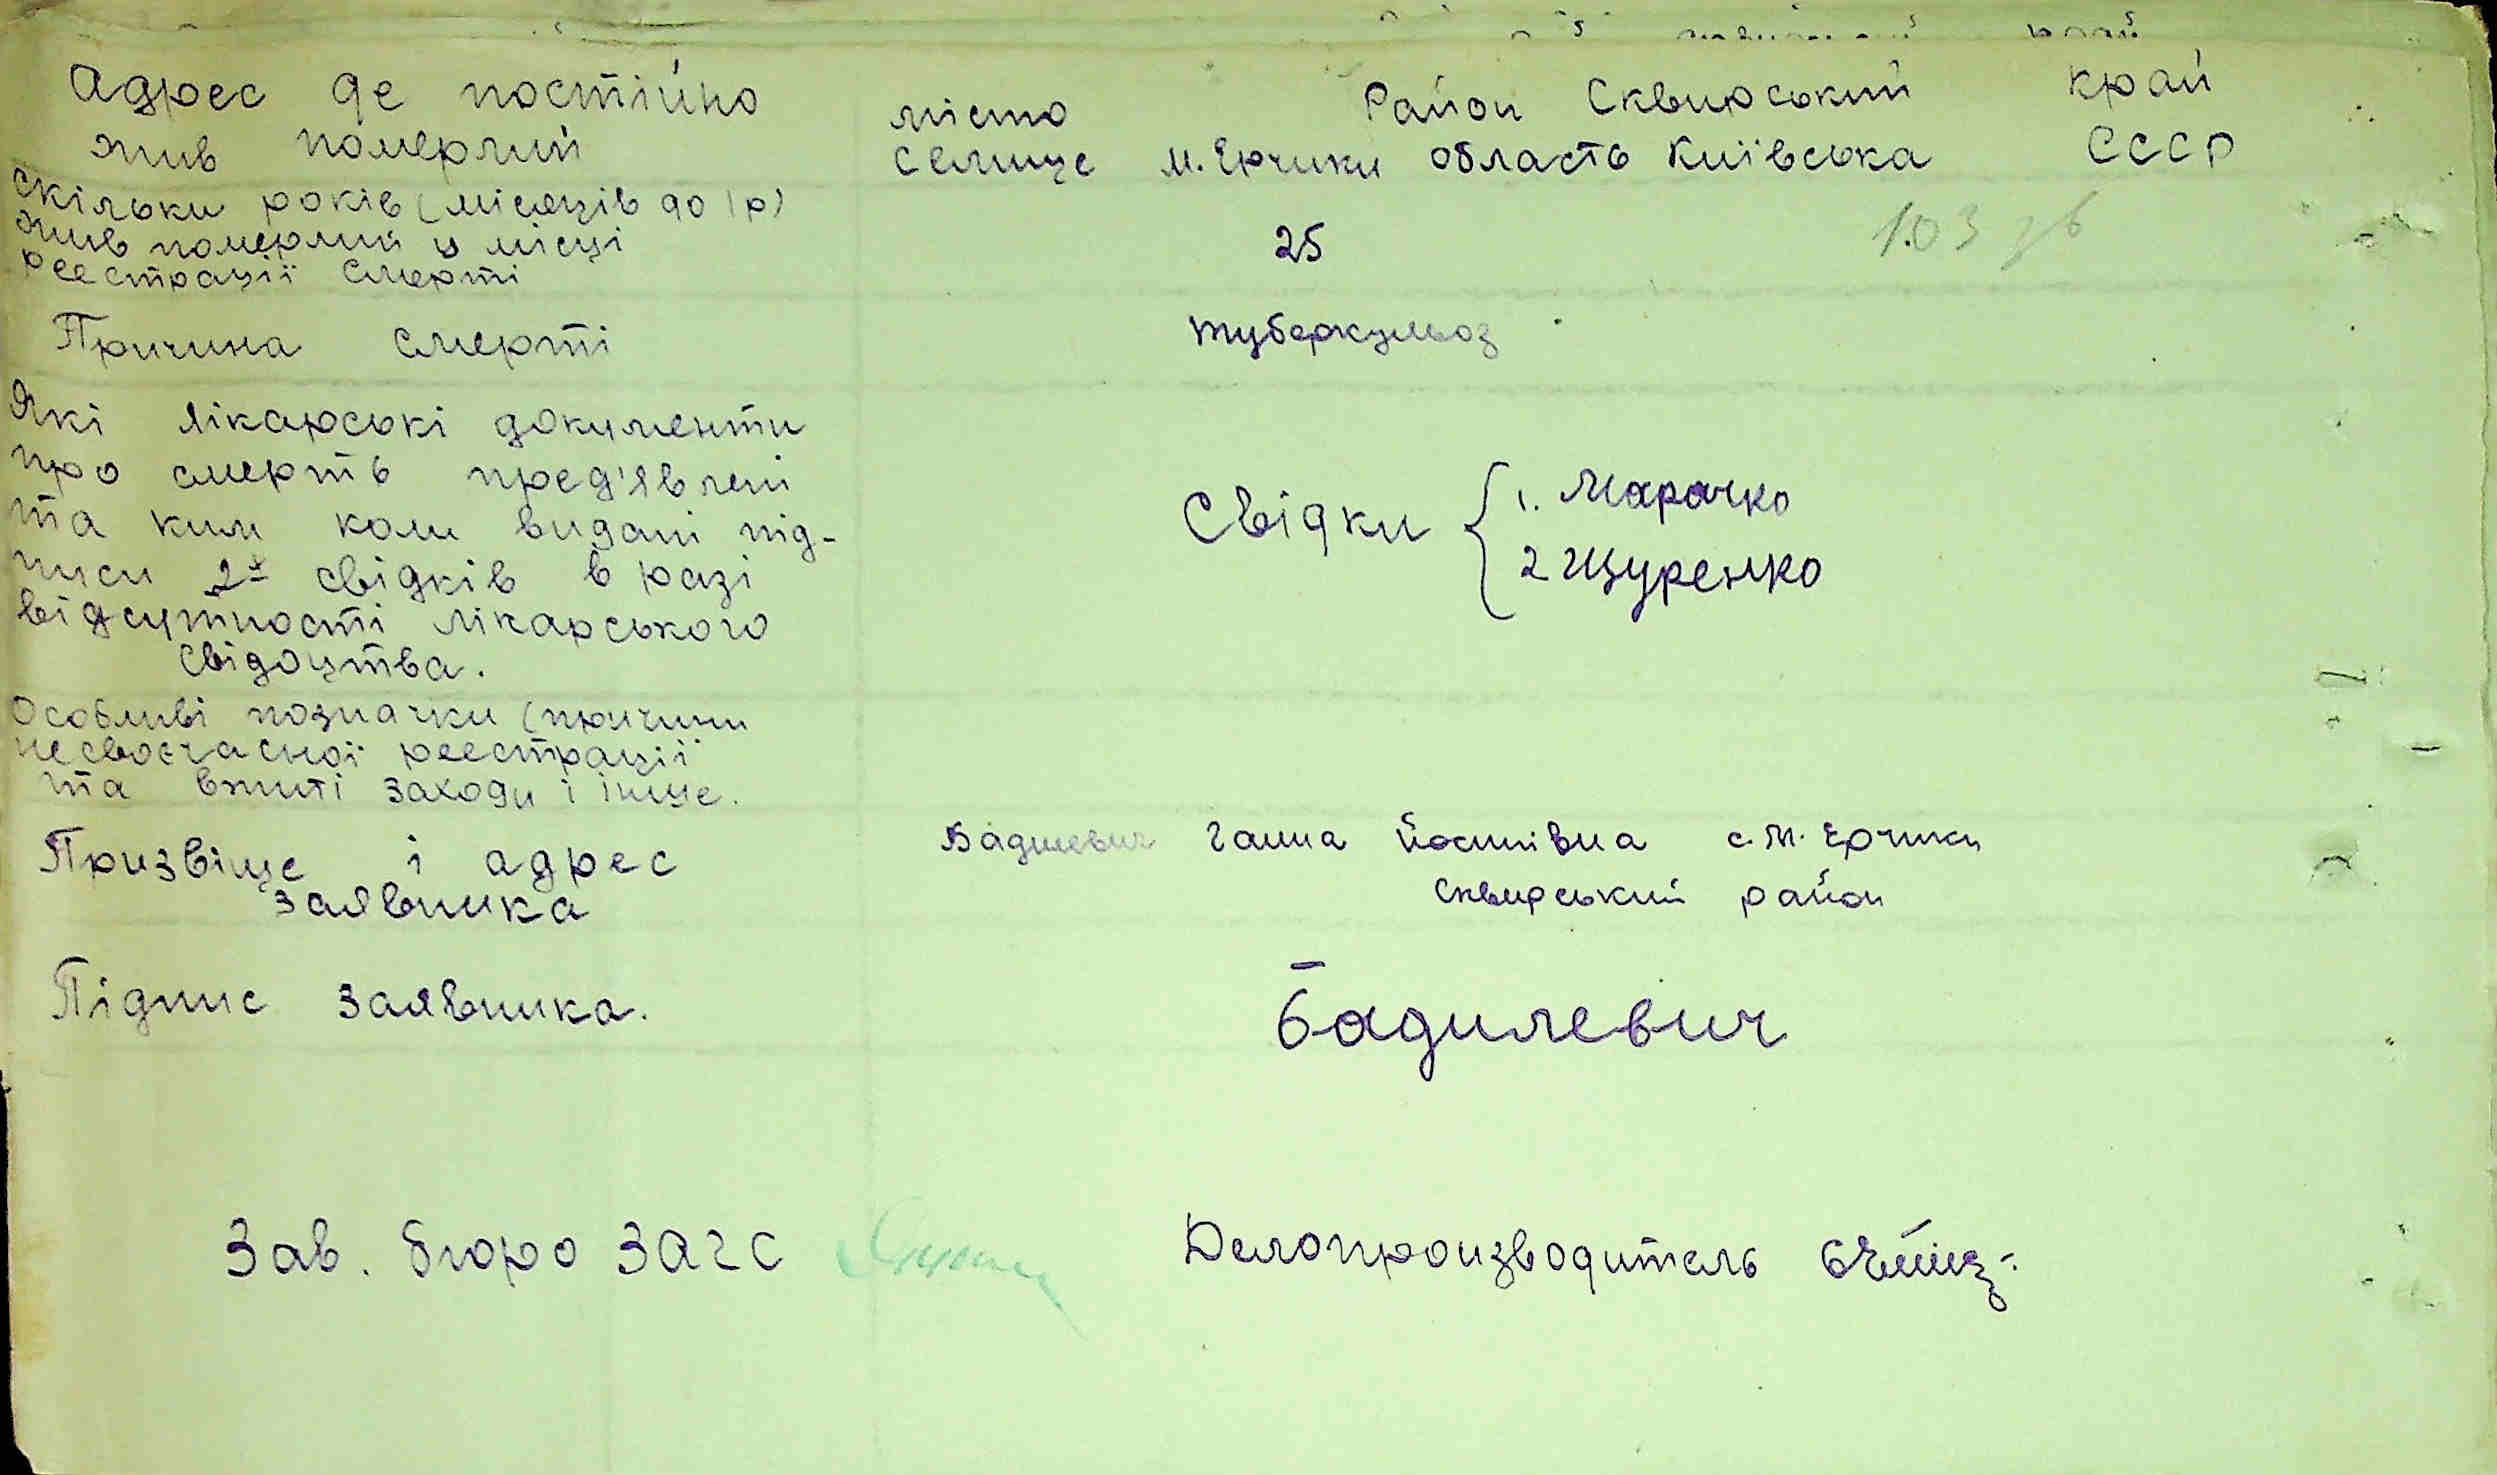 Адрес де постійно місто Район Сквирський край
жив померлий селище М. Єрчики область Київська СССР
скільки років (місяців до 1 р)
жив померлий у місці 25
реєстрації смерті
Причина смерті туберкульоз
Які лікарські документи
про смерть пред'явлені Свідки 1. Марочко
та ким коли видані під-
писи 2х свідків в разі 2 Щуренко
відсутності лікарського
свідоцтва.
Особливі позначки (причини
несвоєчасної реєстрації
та вжиті заходи і інше.
Призвіще і адрес Бадилевич Ганна Йосипівна с. М. Єрчики
заявника Сквирський район
Підпис заявника. Бадилевич
Зав. бюро ЗАГС Делопроизводитель